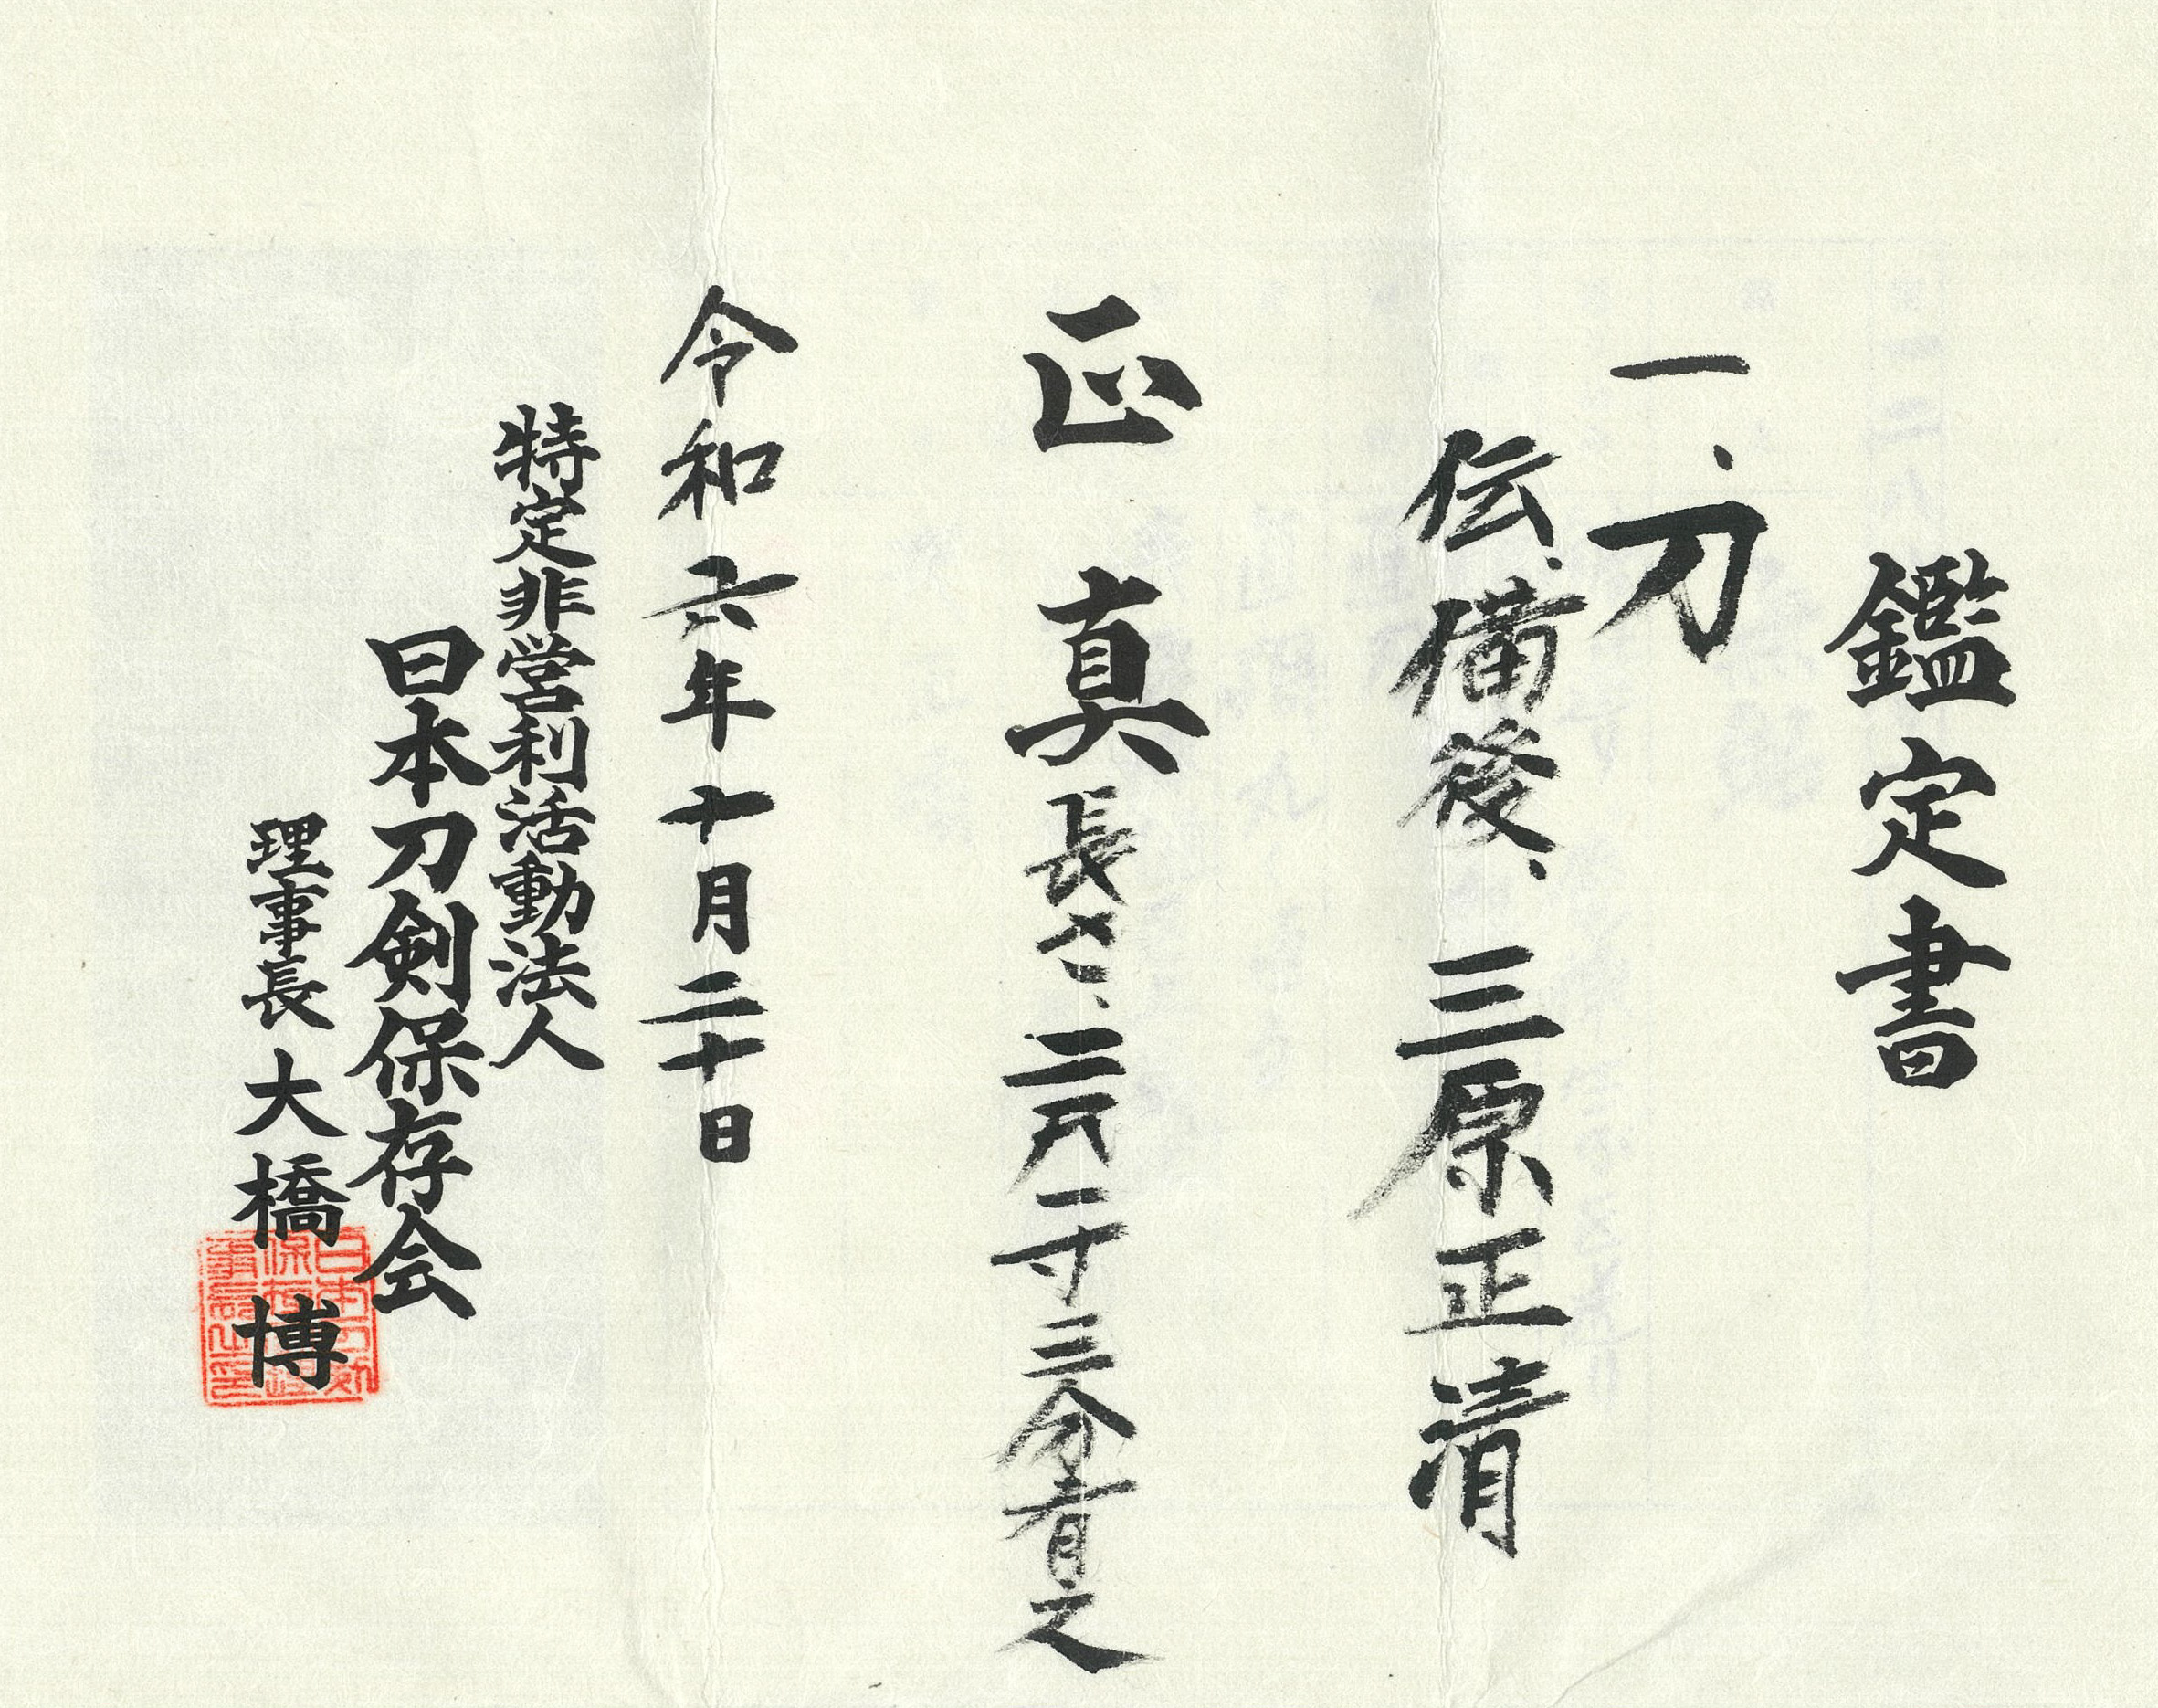 鑑定書
一、刀
伝、備後、三原正清
正真 長さ、二尺一寸三分有之
令和六年十月二十日
特定非営利活動法人
日本刀剣保存会
理事長 大橋 博